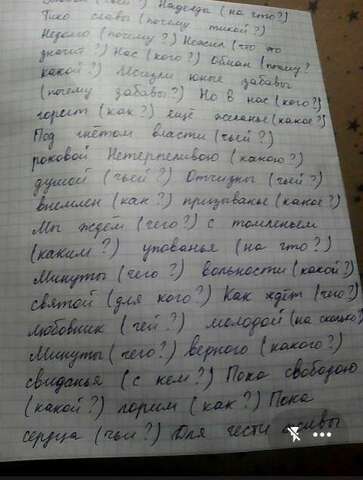 (чьей?) Надежда (на что?)
Тихо славы (почему тихой?)
Недолго (почему?) Нежил (что это
значит?) Нас (кого?) Обман (почему?
какой?) Исчезли юные забавы
(почему забавы?) Но в нас (кого?)
горит (как?) ещё желанье (какое?)
Под гнётом власти (чьей?)
роковой Нетерпеливою (какою?)
душой (чьей?) Отчизны (чьей?)
внемлем (как?) призыванье (какое?)
Мы ждём (чего?) с томленьем
(каким?) упованья (на что?)
Минуты (чего?) вольности (какой?)
святой (для кого?) Как ждёт (чего?)
любовник (чей?) молодой (на сколько?)
Минуты (чего?) верного (какого?)
свиданья (с кем?) Пока свободою
(какой?) горим (как?) Пока
сердца (чьи?) Для чести живы